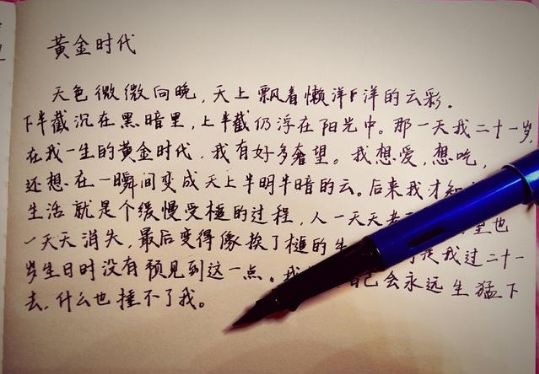 黄金时代
天色微微向晚,天上飘着懒洋洋的云彩.
下半截沉在黑暗里,上半截仍浮在阳光中。那一天我二十一岁,
在我一生的黄金时代,我有好多奢望。我想爱,想吃,
还想在一瞬间变成天上半明半暗的云。后来我才知
生活就是个缓慢受槌的过程,人一天天老 也
一天天消失,最后变得像挨了槌的 是我过二十一
岁生日时没有预见到这一点。我 己会永远生猛下
去,什么也捶不了我。